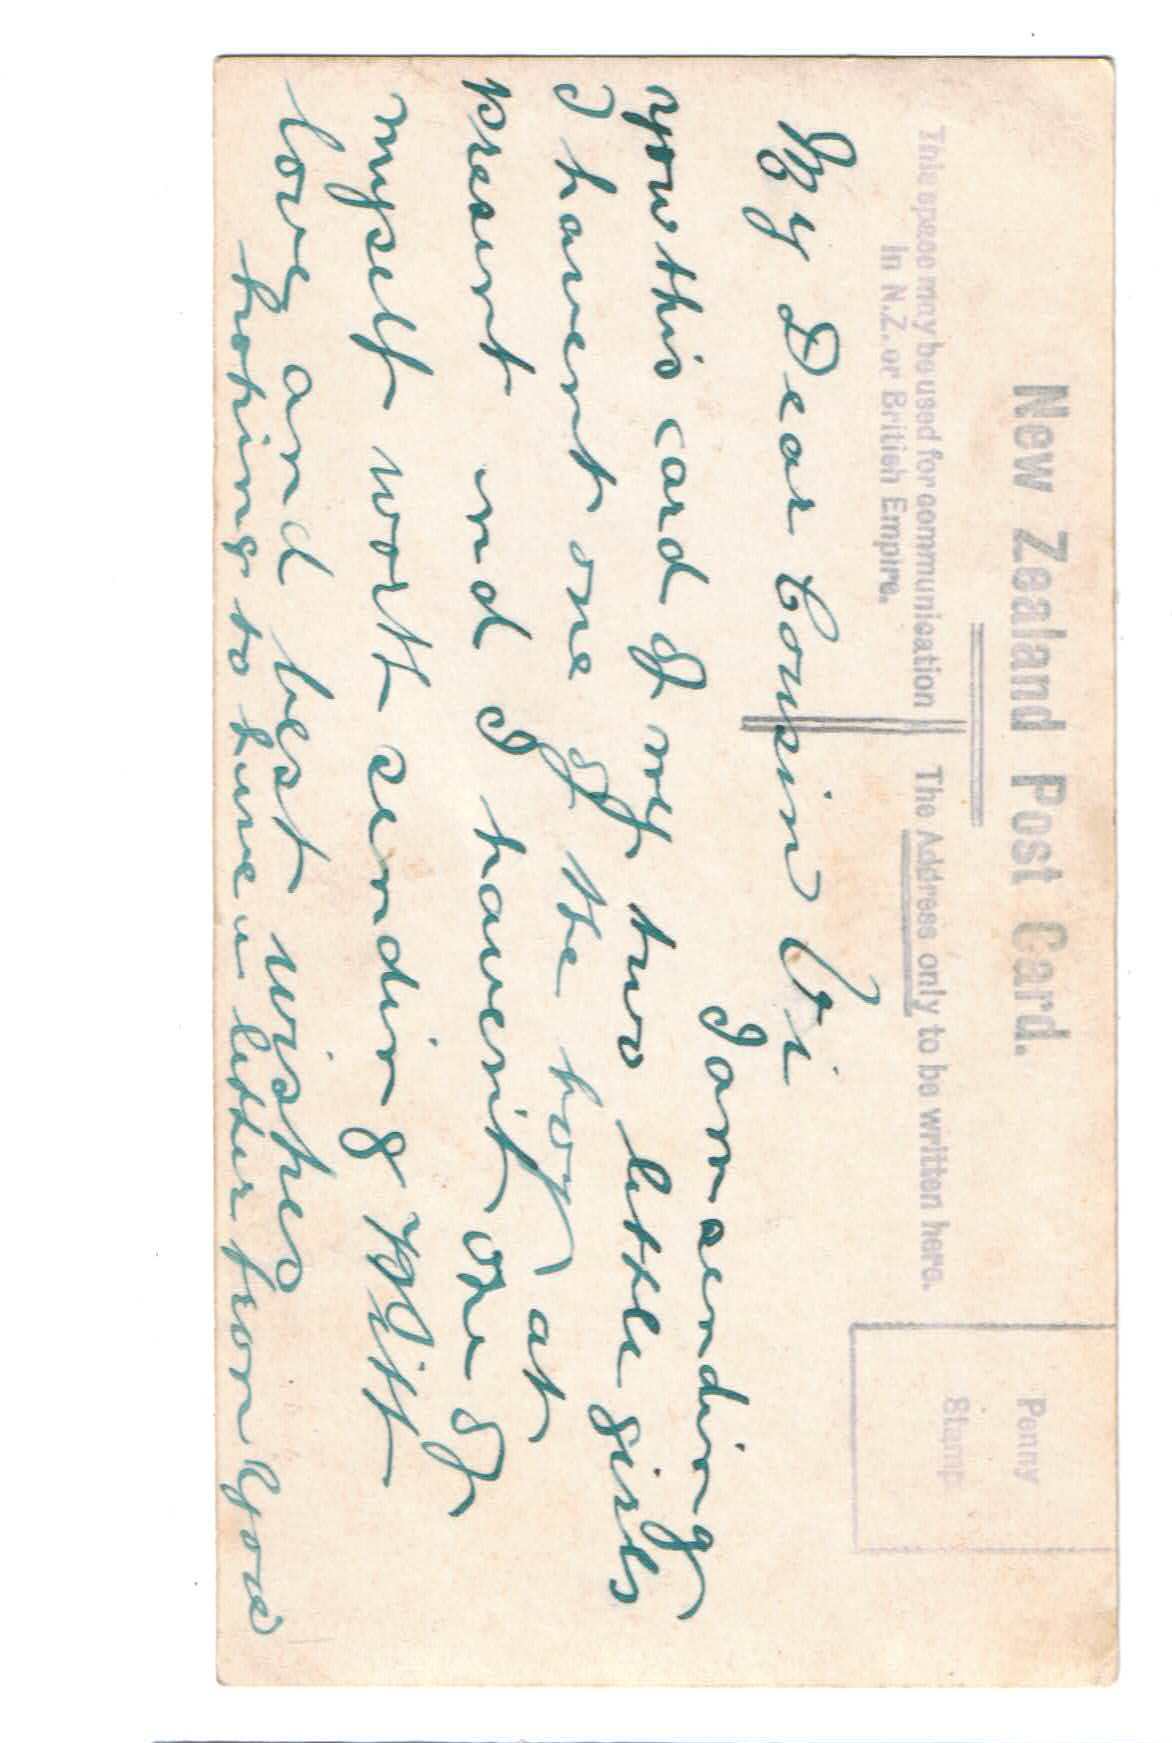 New Zealand Post Card.
This space may be used for communication
in N.Z. or British Empire.
The Address only to be written here.
Penny
Stamp
My Dear Cousin Vi
I am sending
you this card of my two little girls
I havent one of the boy at
present and I havent one of
myself wort sending With
love and best wishes
hoping to have a letter from you